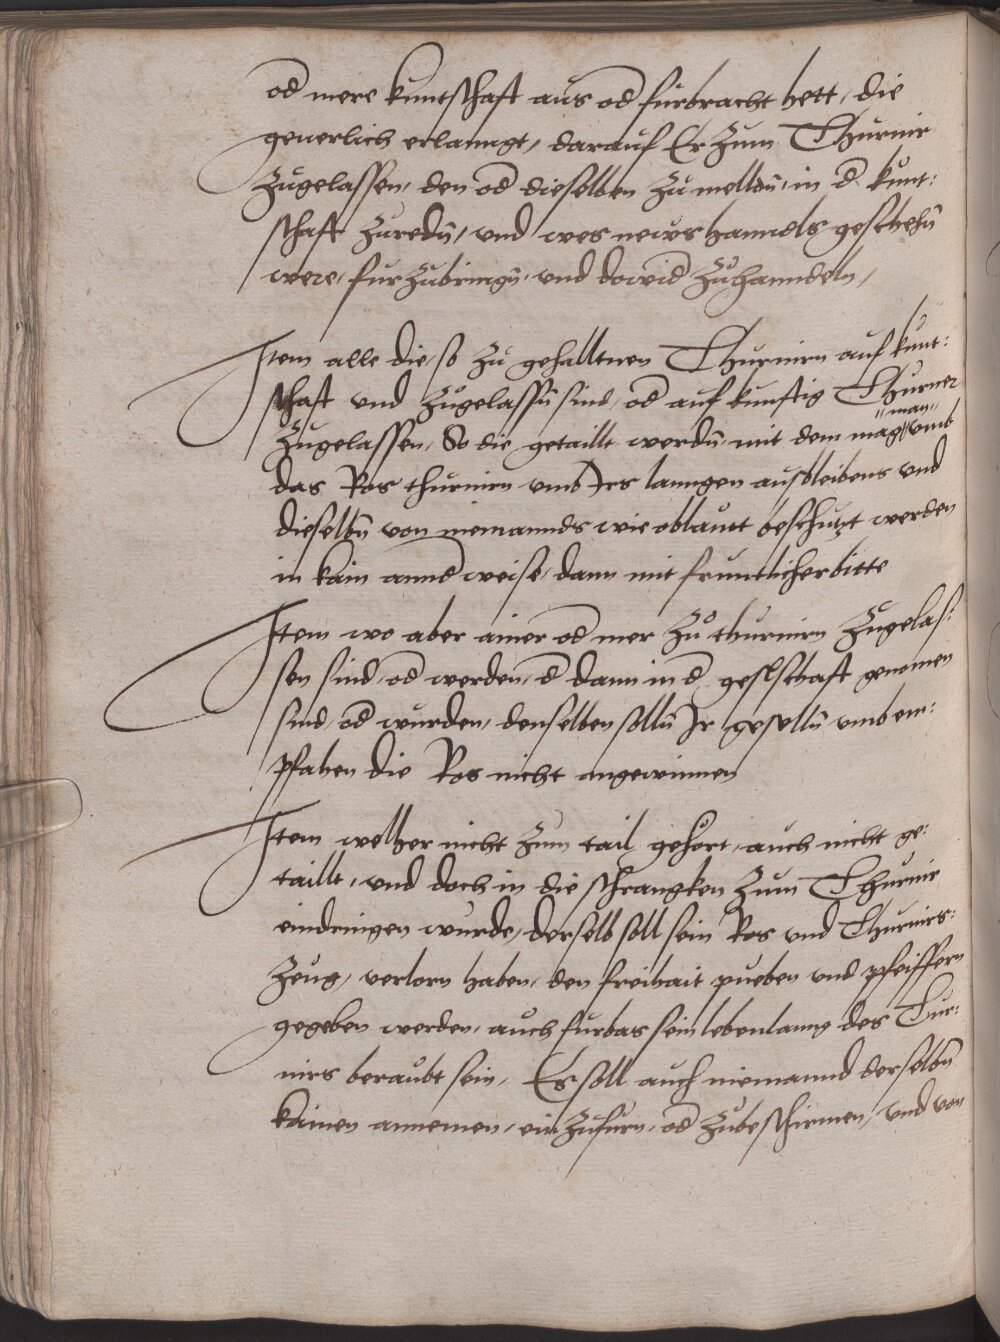 od mere kuntschaft aus od furbracht hett, die
geuerlich erlanngt, darauf Er zum Thurnir
zugelassen, den od dieselben zu melldn, in d kunt:
schaft zuredn, und wes news hanndels geschehn
were, fur zubringn, und dowid zuhanndeln,
Item alle die so zu gehalltnen Thurnirn auf kunt:
schaft und zugelassn sind, od auf kunftig Thurner
zugelassen, So die getaillt werdn, mit dem mag man umb
das Ros thurnirn umb Irs lanngen ausbleibens und
dieselbn von niemannds wie oblautt beschutzt werden
in kain annd weise, dann mit fruntlicher bitte
Item wo aber ainer od mer zu thurnirn zugelas:
sen sind, od werden, d dann in d geslschaft genomen
sind, od wurden, denselben solln Ir geselln umb em:
pfahen die Ros nicht angewinnen
Item welher nicht zum tail gehort, auch nicht ge:
taillt, und doch in die schrangken zum Thurnir
eindringen wurde, derselb soll sein Ros und Thurnirs:
zeug, verlorn haben, den freihait pueben und pfeiffern
gegeben werden, auch furbas sein lebenlanng des Tur:
nirs beraubt sein, Es soll auch niemannd derselbn
kainen annemen, ein zufurn, od zubeschirmen, und von